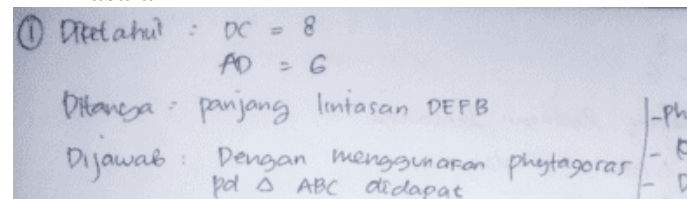 ① Diketahui : DC = 8
AD = 6
Ditanya : panjang lintasan DEFB
Dijawab : Dengan menggunakan phytagoras
pd △ ABC didapat
-ph
-
-